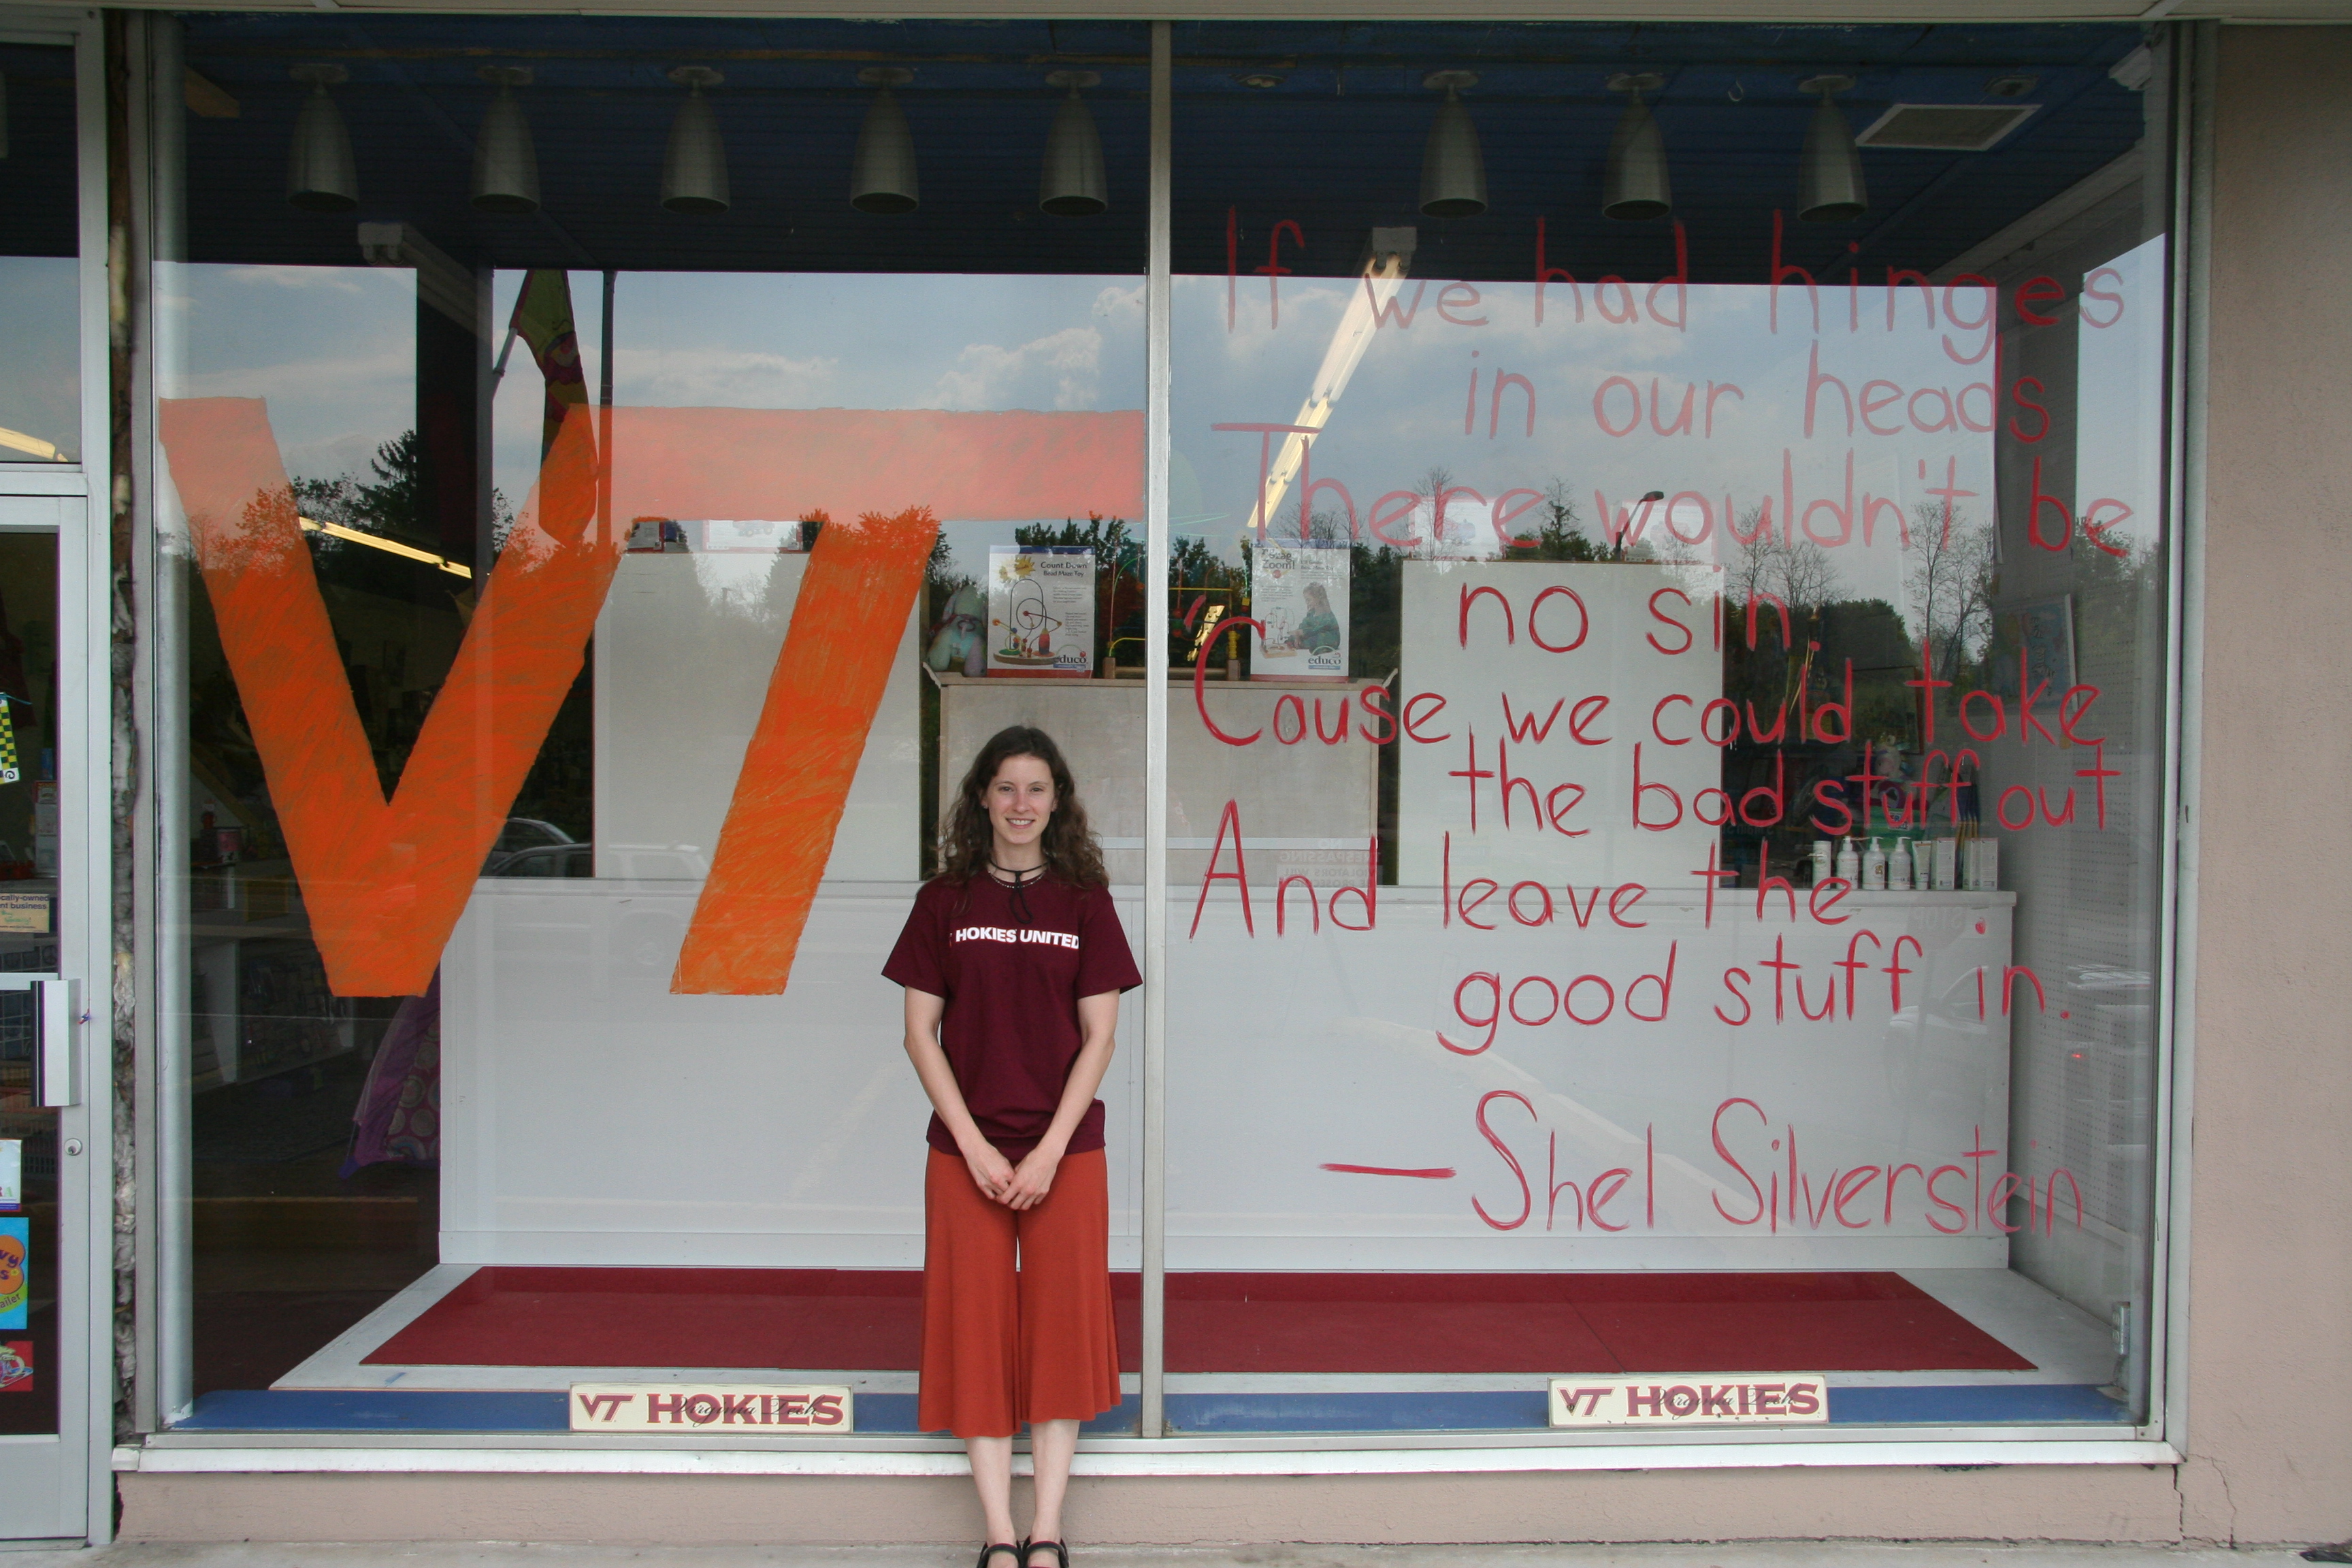 VT
If we had hinges
in our heads
There wouldn't be
no sin.
'Cause we could take
the bad stuff out
And leave the
good stuff in.
—Shel Silverstein
Count Down
Bead Maze Toy
educo
Zoom!
educo
HOKIES UNITED
NO
TRESPASSING
VIOLATORS WILL
cally-owned
nt business
ailer
VT HOKIES
Virginia Tech
VT HOKIES
Virginia Tech